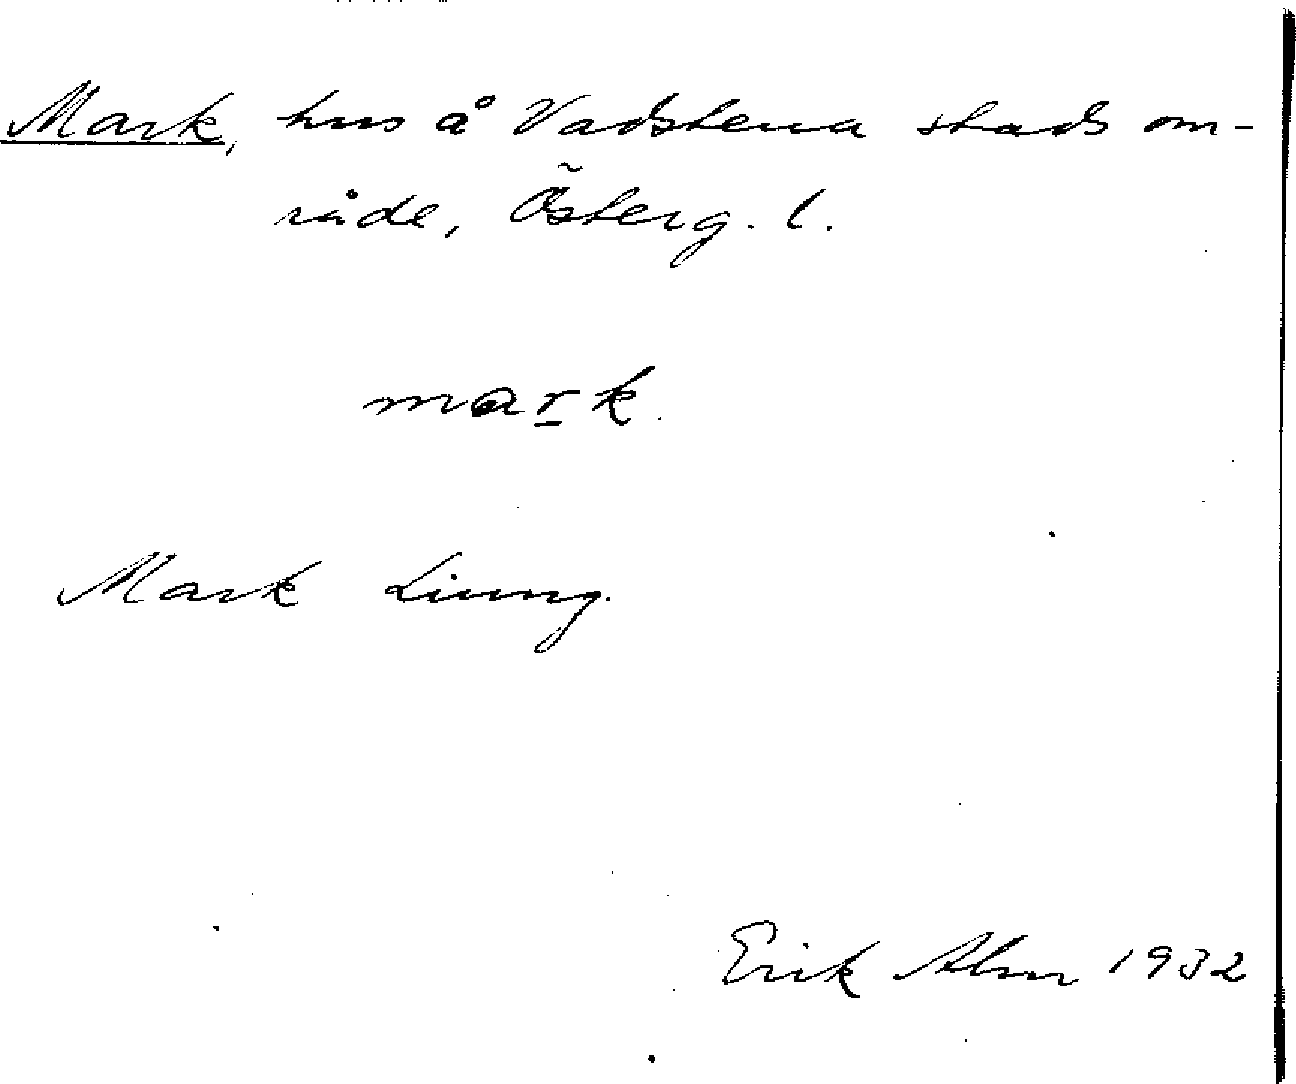 Mark, hus å Vadstena stads om-
råde, Österg. l.
mark.
Mark Liung.
Erik Alm 1932